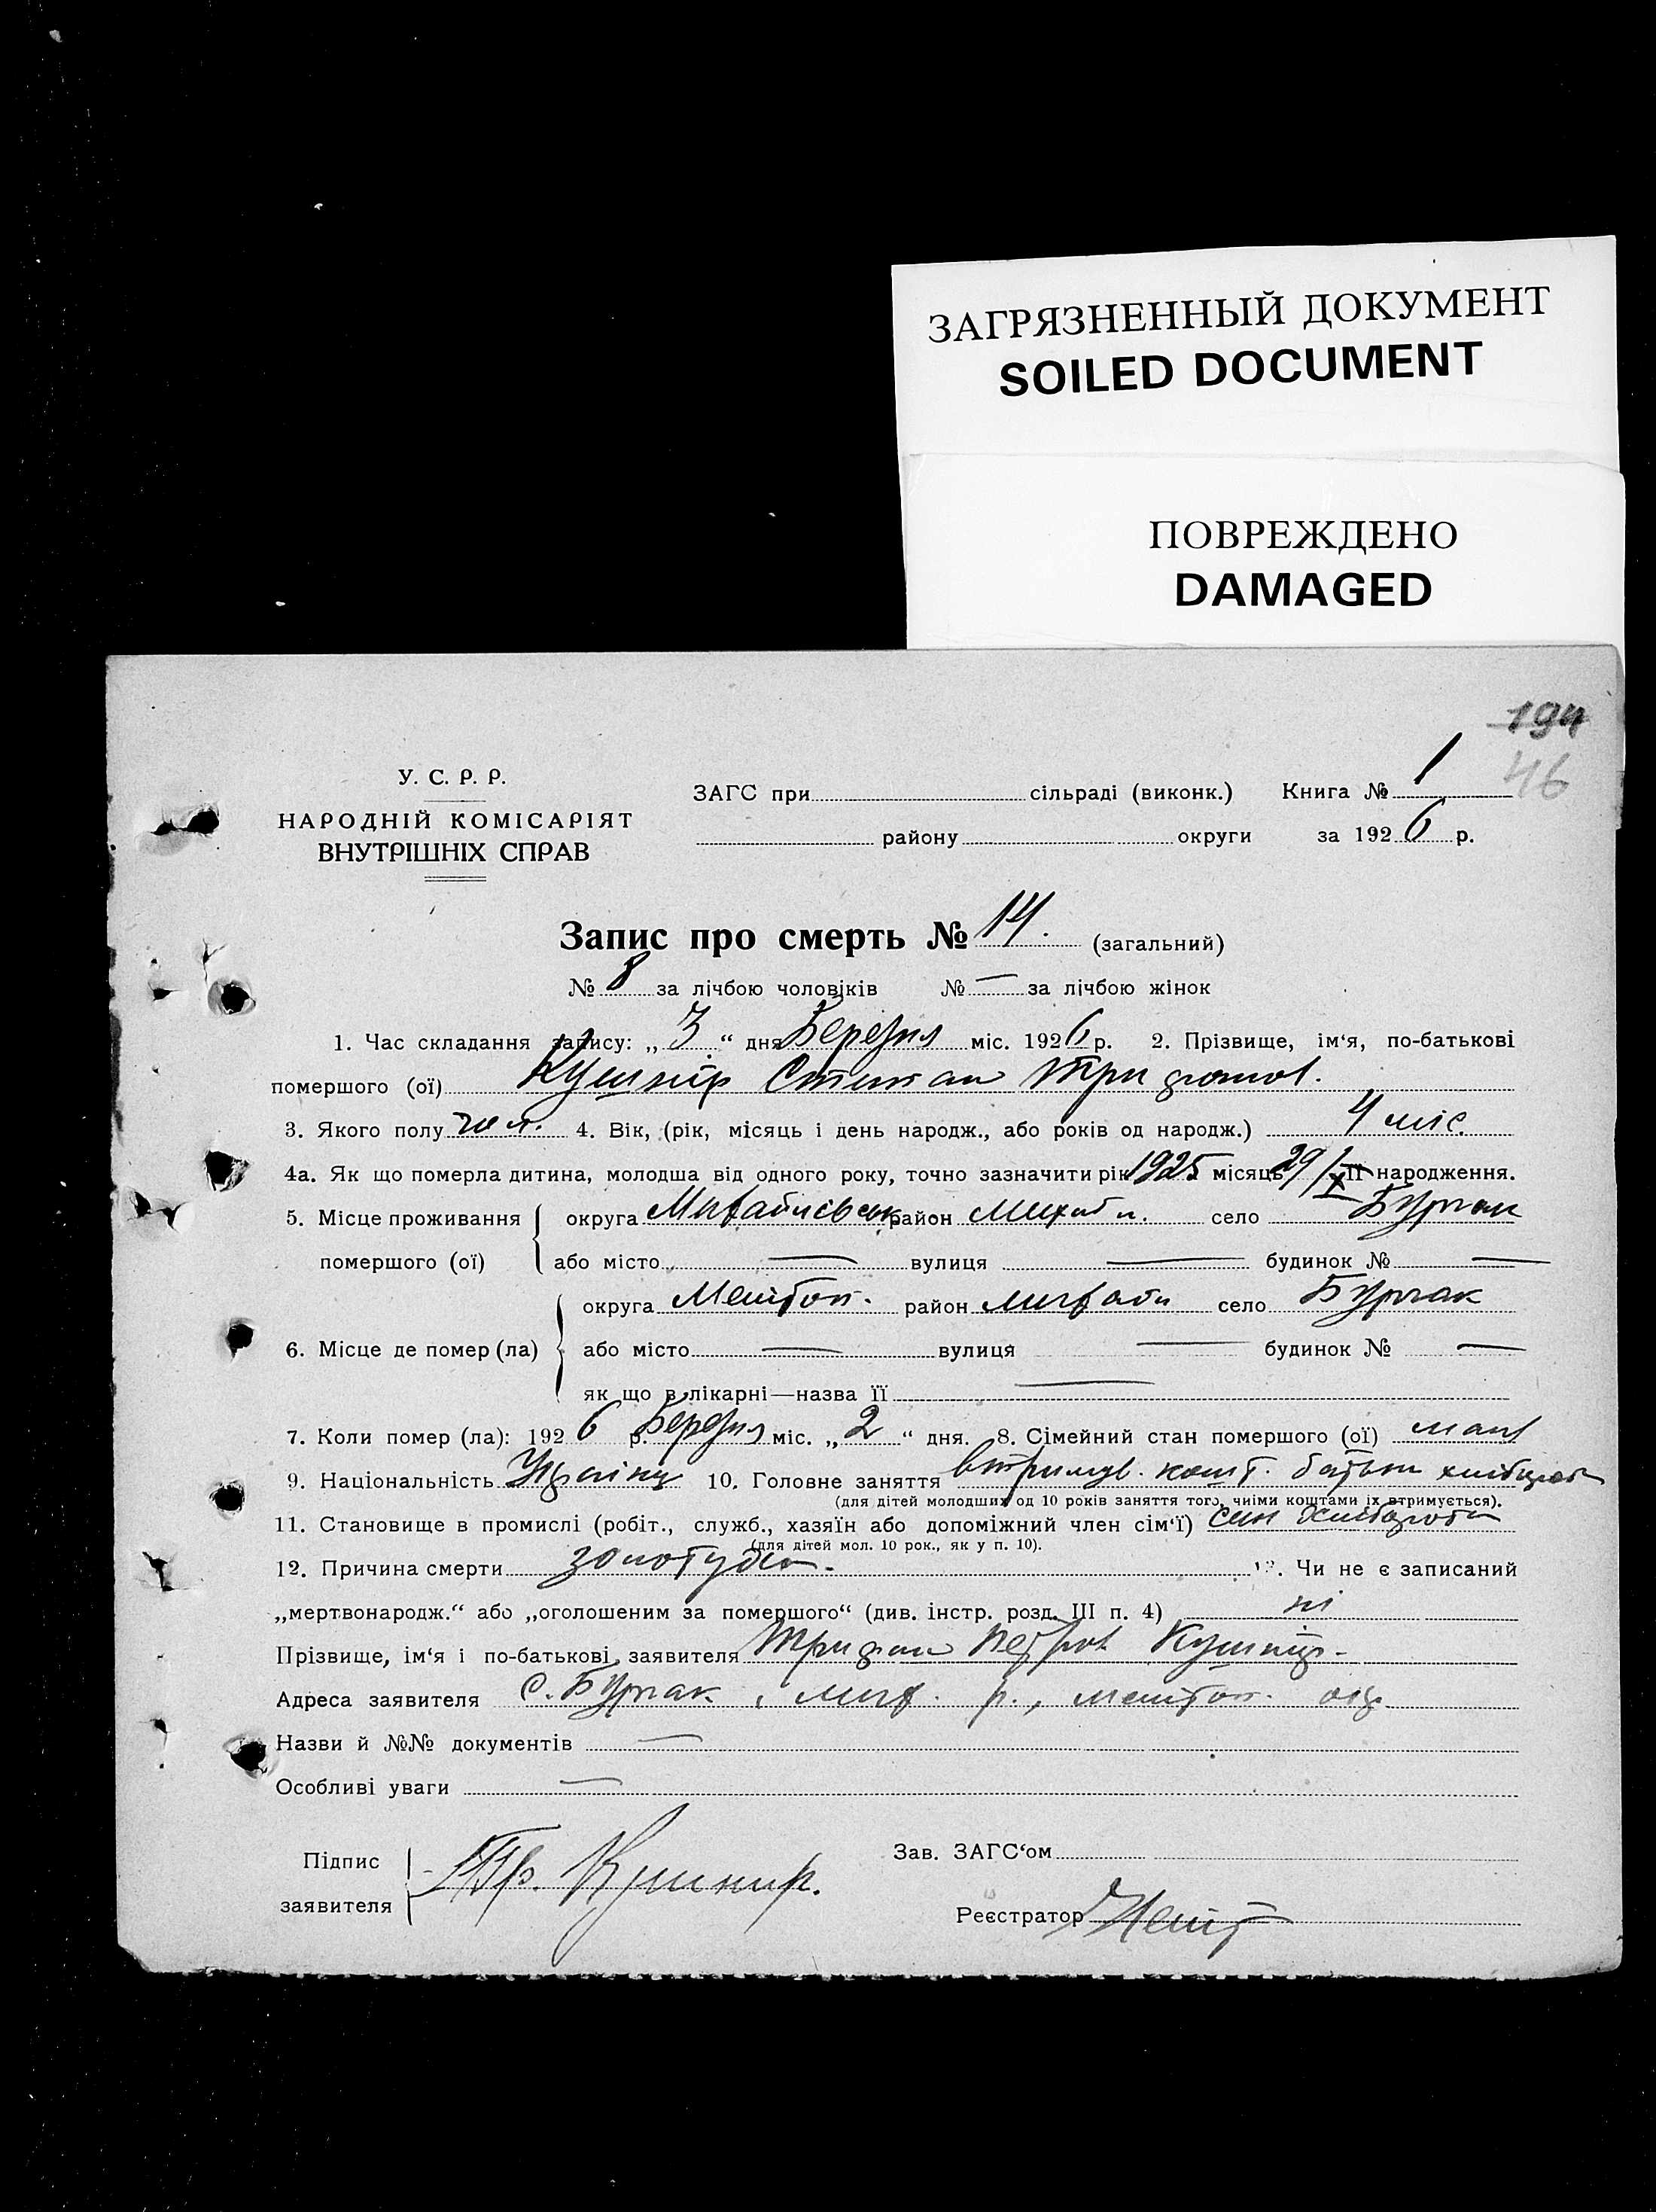 ЗАГРЯЗНЕННЫЙ ДОКУМЕНТ
SOILED DOCUMENT
ПОВРЕЖДЕНО
DAMAGED
194
46
У. С. Р. Р.
НАРОДНІЙ КОМІСАРІЯТ
ВНУТРІШНІХ СПРАВ
ЗАГС при сільраді (виконк.) Книга № 1
району округи за 1926 р.
Запис про смерть № 14. (загальний)
№ 8 за лічбою чоловіків № — за лічбою жінок
1. Час складання запису: „3“ дня Березня міс. 1926 р. 2. Прізвище, ім‘я, по-батькові
помершого (ої) Кушнір Степан
3. Якого полу чол. 4. Вік, (рік, місяць і день народж., або років од народж.) 4 міс.
4а. Як що померла дитина, молодша від одного року, точно зазначити рік 1925 місяць 29/X її народження.
5. Місце проживання округа район Михайл. село Бурчак
помершого (ої) або місто — вулиця — будинок № —
округа Мелітоп. район Михайл село Бурчак
6. Місце де помер (ла) або місто — вулиця — будинок № —
як що в лікарні—назва її —
7. Коли помер (ла): 1926 р. Березня міс. „2“ дня. 8. Сімейний стан помершого (ої)
9. Національність Україн 10. Головне заняття втримув. кошт. батьки хлібороб
(для дітей молодших од 10 років заняття того, чиїми коштами їх втримується).
11. Становище в промислі (робіт., служб., хазяїн або допоміжний член сім‘ї) син хлібороба
(для дітей мол. 10 рок., як у п. 10).
12. Причина смерти золотуха. 13. Чи не є записаний
„мертвонародж.“ або „оголошеним за помершого“ (див. інстр. розд. III п. 4) ні
Прізвище, ім‘я і по-батькові заявителя Петров Кушнір
Адреса заявителя с. Бурчак, Мих. р., Мелітоп. окр.
Назви й №№ документів —
Особливі уваги —
Підпис
заявителя Тр. Кушнир.
Зав. ЗАГС‘ом
Реєстратор